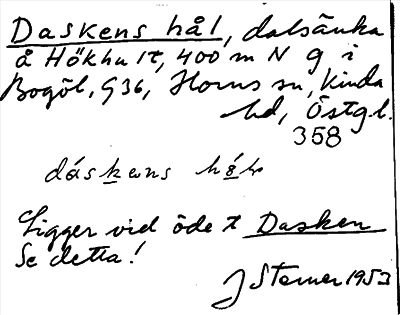 Daskens hål, dalsänka
å Hökhult, 400 m N g i
Bogöl, G36, Horns sn, Kinda
hd, Östg.l.
358
dáskens hǻl
Ligger vid öde t Dasken
Se detta!
J Sterner 1953